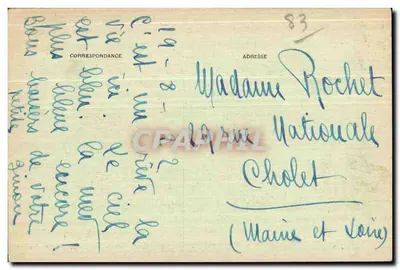 83
CORRESPONDANCE
ADRESSE
19-8-
C'est un rêve la
vie ici. Le ciel
est bleu. la mer
plus bleue encore!
Bons baisers de votre
Madame Rochet
29 rue Nationale
Cholet
(Maine et Loire)